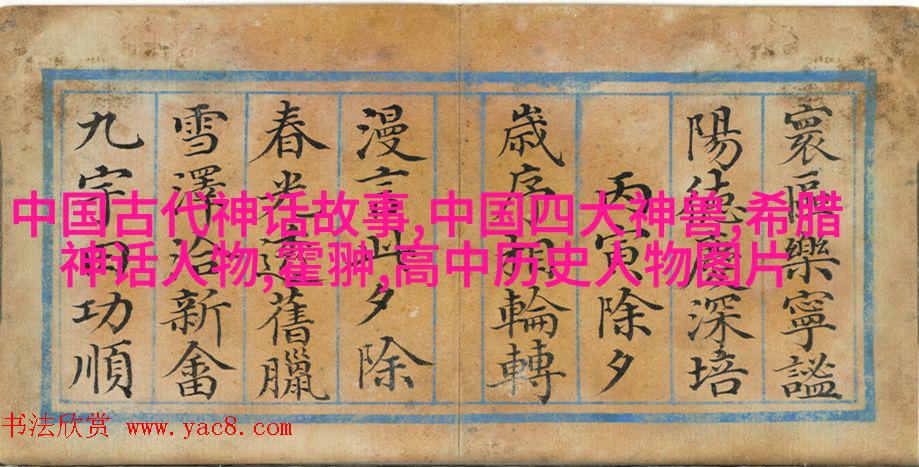 寰區樂寧謐
陽德慶深培
丙寅除夕
歲序相輪轉
漫言此夕除
春光還舊臘
雪澤洽新畬
九宇功順
中国古代神话故事,中国四大神兽,希腊
神话人物,霍翀,高中历史人物图片
书法欣赏 www.yac8.com